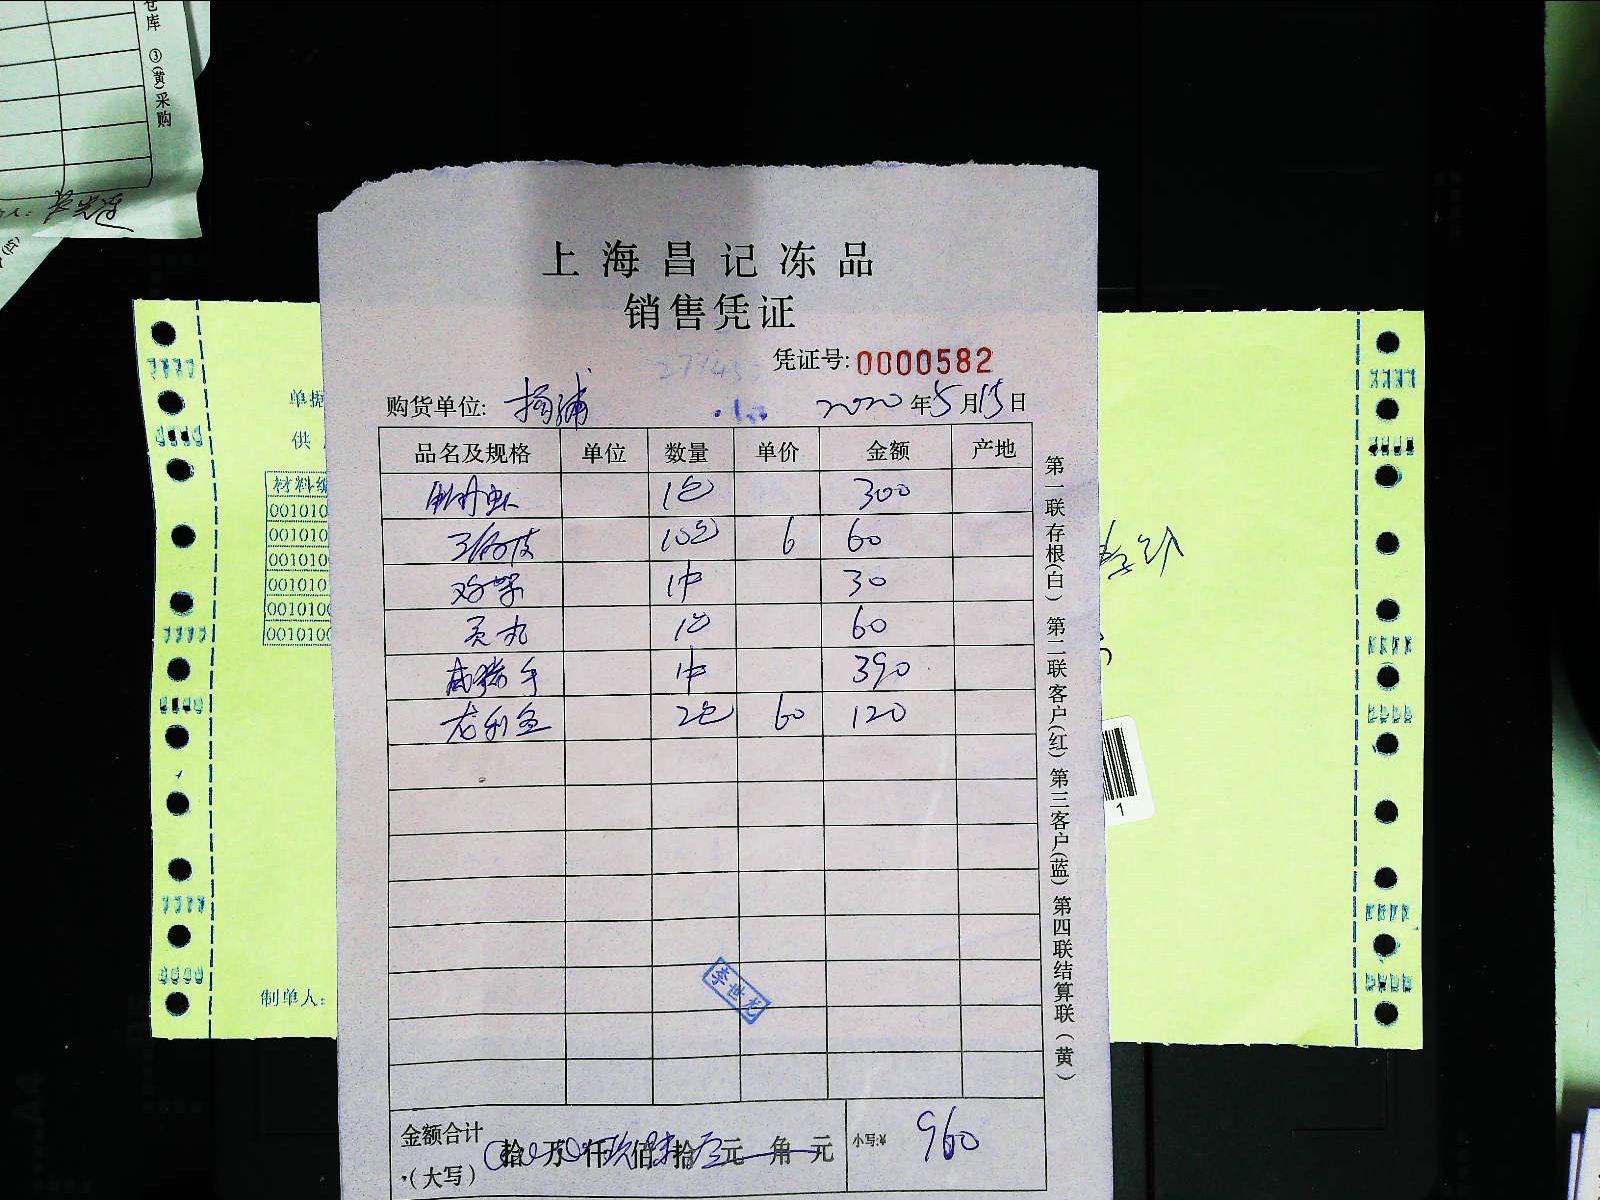 仓库 ③(黄)采购
上海昌记冻品
销售凭证
凭证号:0000582
购货单位: 杨浦 2020年5月15日
品名及规格 单位 数量 单价 金额 产地
1包 300
10包 6 60
鸡架 1件 30
贡丸 1包 60
咸猪手 1件 390
龙利鱼 2包 60 120
李世龙
金额合计 拾 万 仟 玖佰 陆拾 元 角 元 小写:¥ 960
(大写)
第一联存根(白) 第二联客户(红) 第三客户(蓝) 第四联结算联(黄)
单据
供
材料编
001010
001010
001010
001010
0010100
0010100
制单人:
1